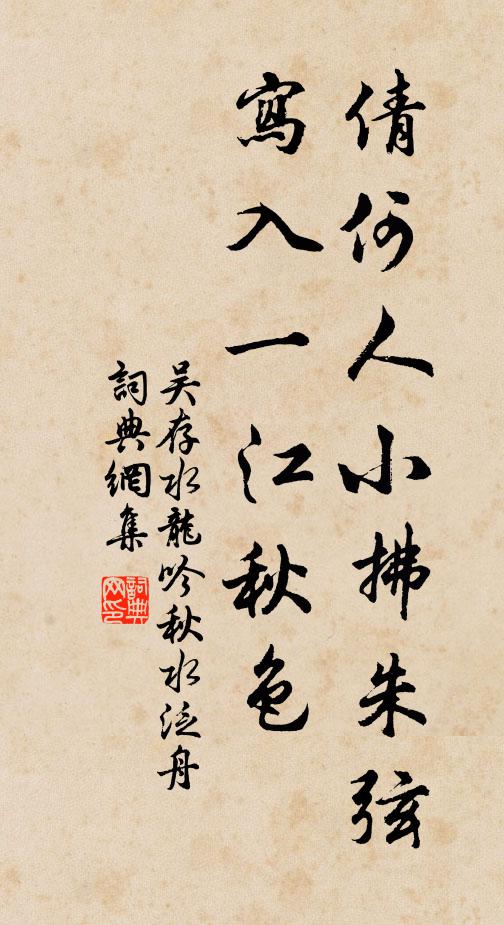 倩何人小拂朱弦
寫入一江秋色
吳存水龍吟秋水泛舟
詞典網集
詞典網印